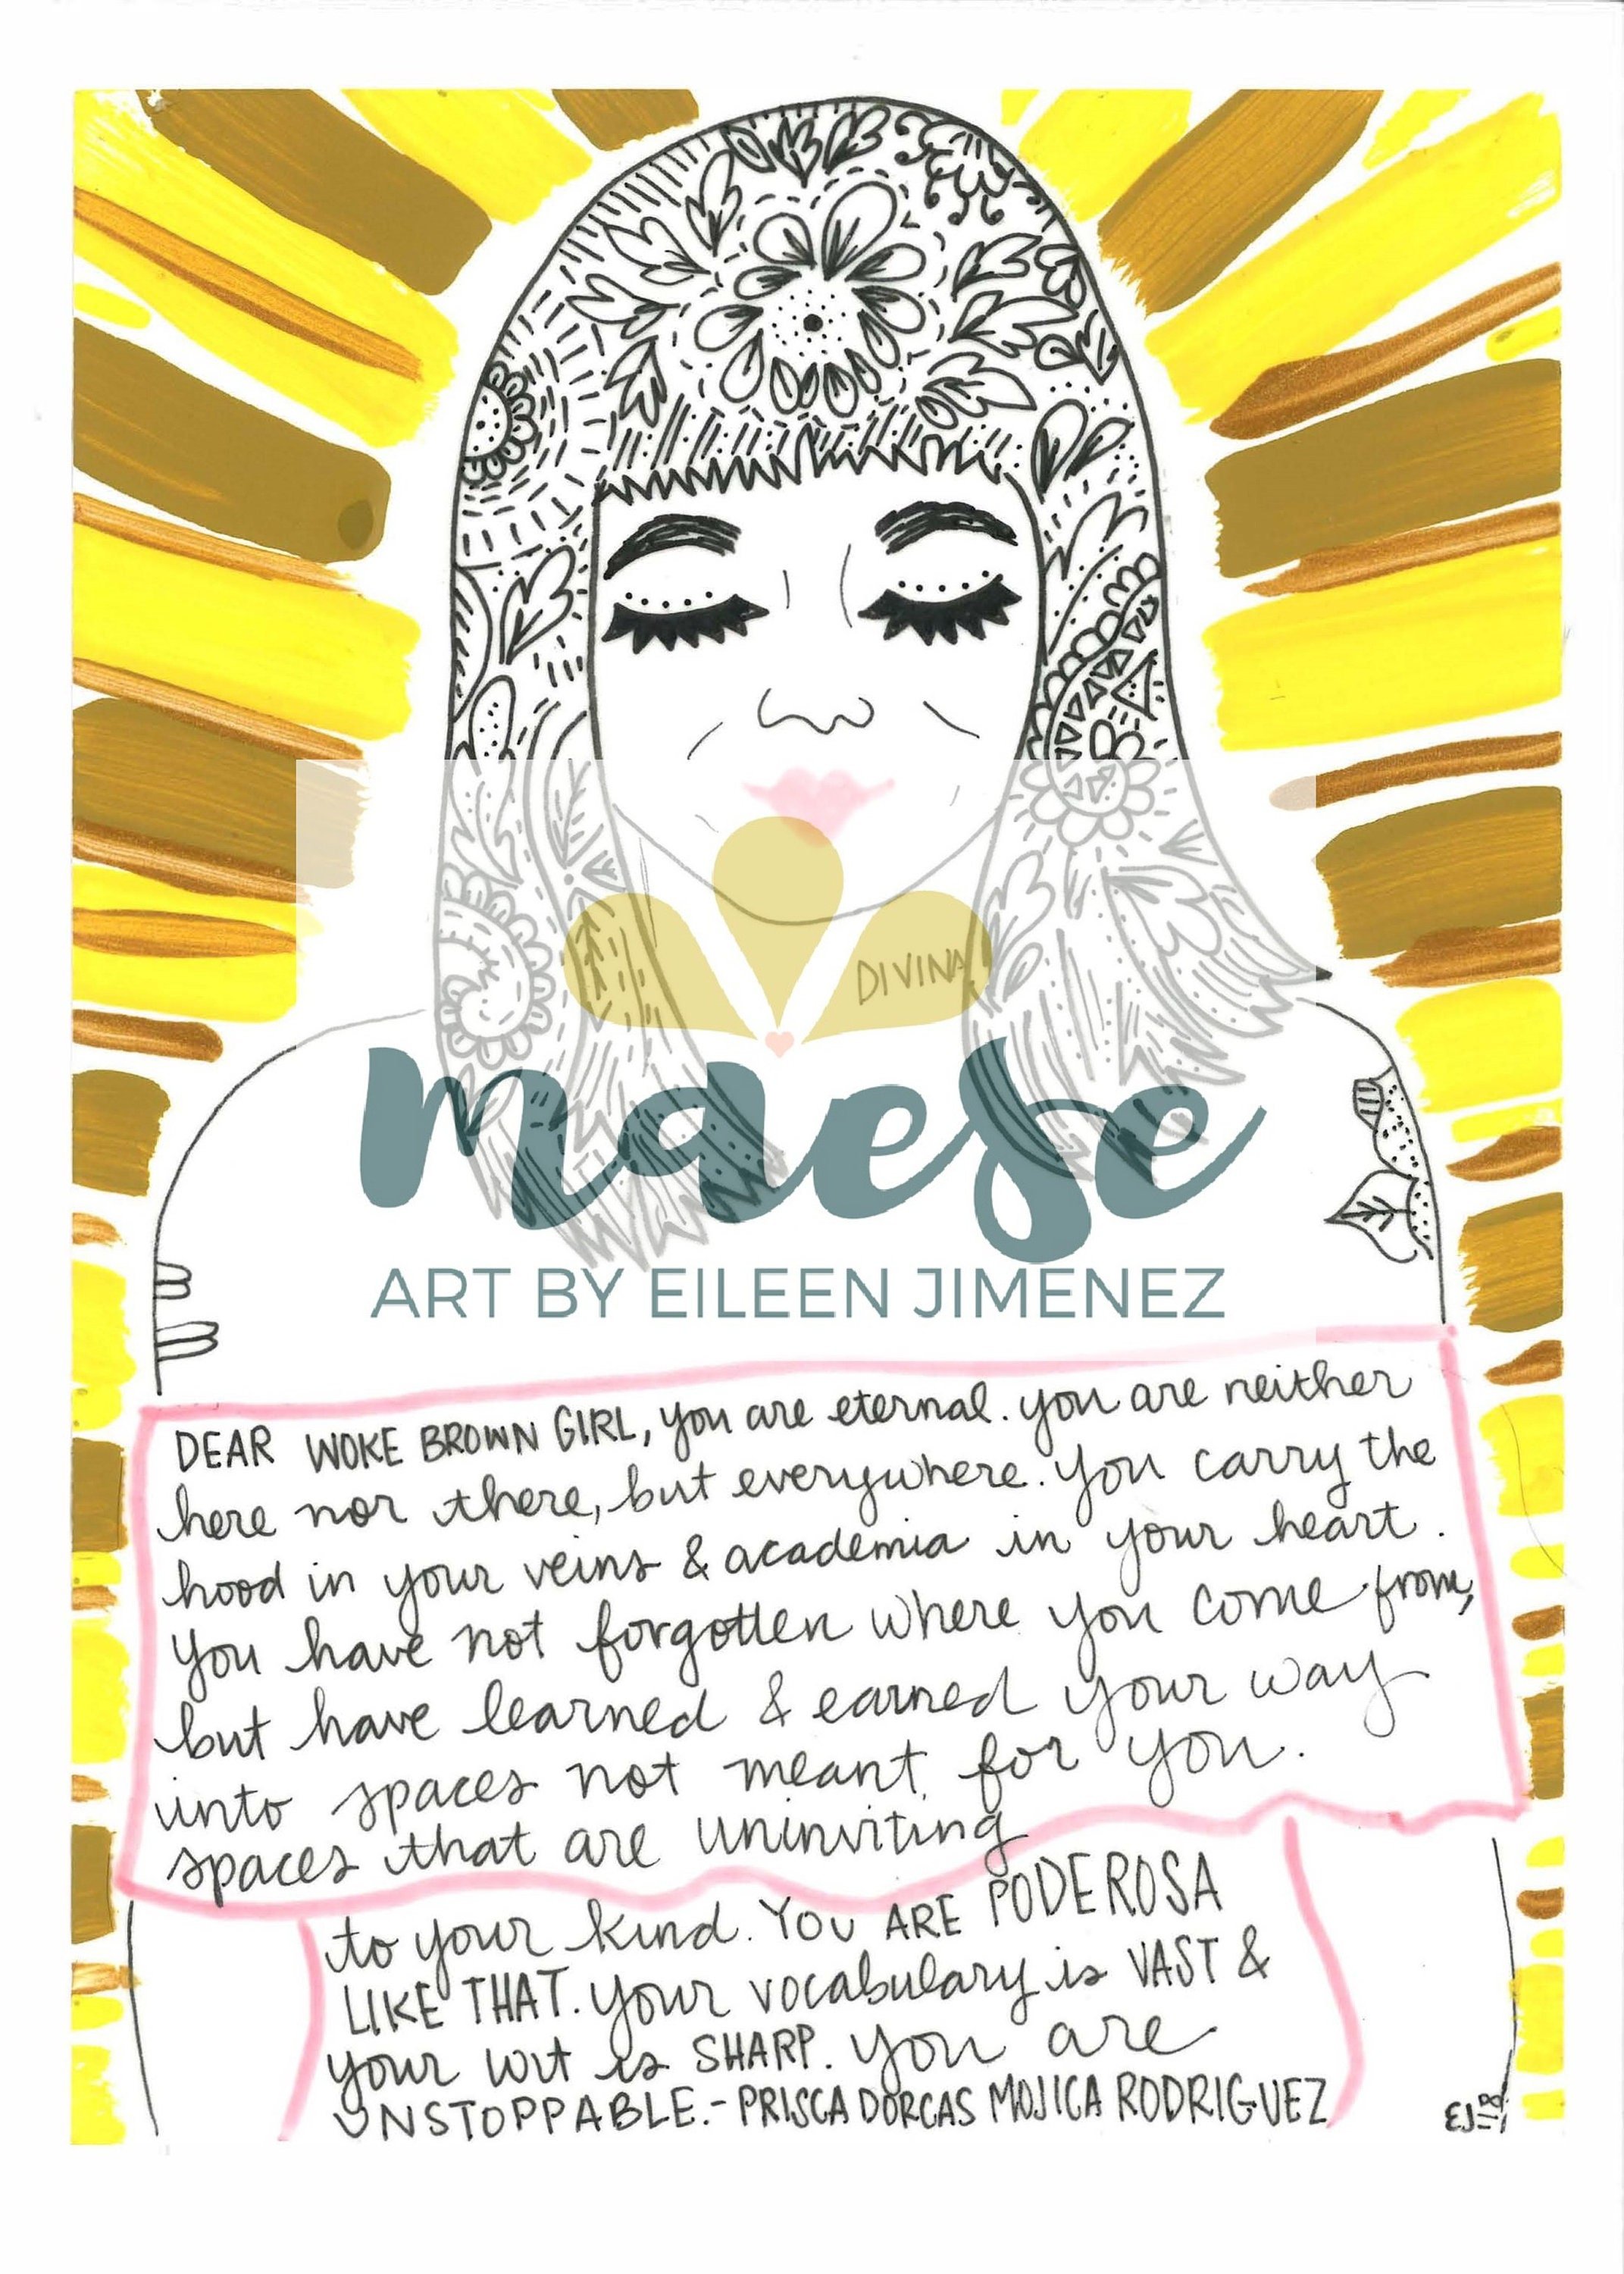 DIVINA
maese
ART BY EILEEN JIMENEZ
DEAR WOKE BROWN GIRL, you are eternal. you are neither
here nor there, but everywhere. you carry the
hood in your veins & academia in your heart.
you have not forgotten where you come from,
but have learned & earned your way
into spaces not meant for you.
spaces that are uninviting
to your kind. YOU ARE PODEROSA
LIKE THAT. your vocabulary is VAST &
your wit is SHARP. you are
UNSTOPPABLE.- PRISCA DORCAS MOJICA RODRIGUEZ